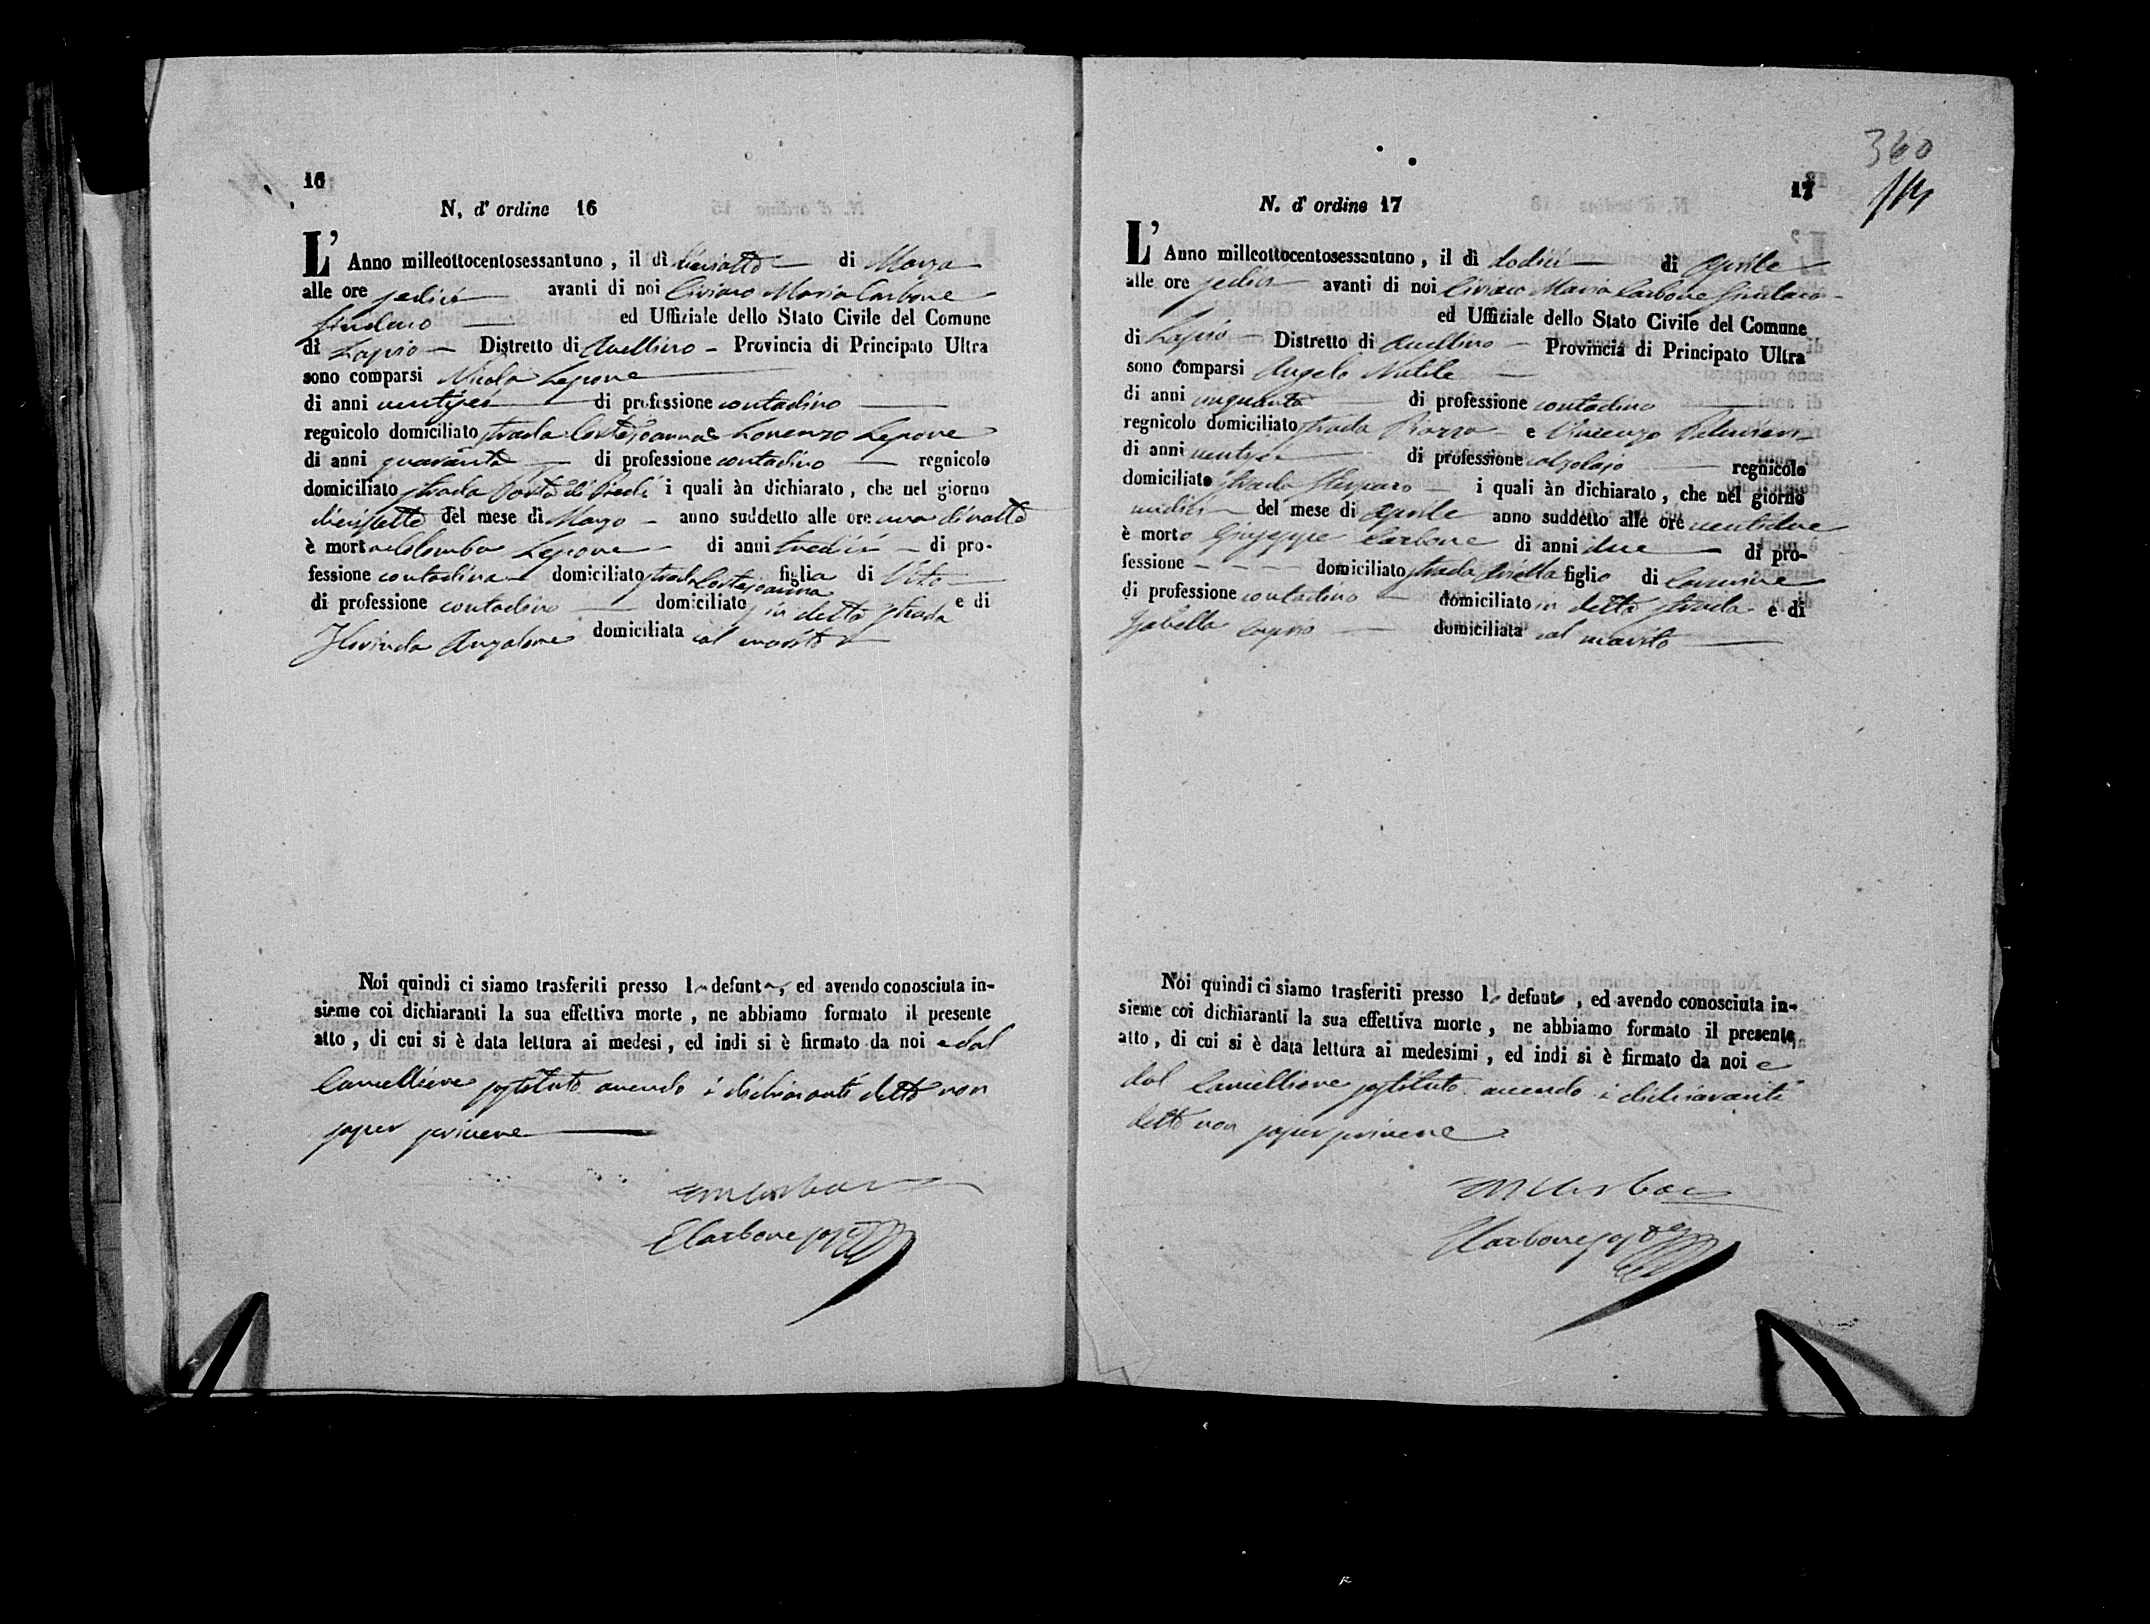 16
N. d' ordine 16
L' Anno milleottocentosessantuno, il dì diciotto di Marzo
alle ore sedici avanti di noi Ciriaco Maria Carbone
Sindaco ed Uffiziale dello Stato Civile del Comune
di Lapio Distretto di Avellino Provincia di Principato Ultra
sono comparsi Nicola Lepore
di anni ventisei di professione contadino
regnicolo domiciliato strada Costa Joanna e Lorenzo Lepore
di anni quaranta di professione contadino regnicolo
domiciliato strada Porta di Piedi i quali àn dichiarato, che nel giorno
diecisette del mese di Marzo anno suddetto alle ore una di notte
è morta Colomba Lepore di anni tredici di pro-
fessione contadina domiciliato strada Costa Joanna figlia di Vito
di professione contadino domiciliato in detta strada e di
Florinda Anzalone domiciliata col marito
Noi quindi ci siamo trasferiti presso la defunta, ed avendo conosciuta in-
sieme coi dichiaranti la sua effettiva morte, ne abbiamo formato il presente
atto, di cui si è data lettura ai medesi, ed indi si è firmato da noi e dal
Cancelliere sostituto avendo i dichiaranti detto non
saper scrivere
CM Carbone
E Carbone sost
360
17
N. d' ordine 17
L' Anno milleottocentosessantuno, il dì dodici di Aprile
alle ore sedici avanti di noi Ciriaco Maria Carbone Sindaco
ed Uffiziale dello Stato Civile del Comune
di Lapio Distretto di Avellino Provincia di Principato Ultra
sono comparsi Angelo Nutile
di anni cinquanta di professione contadino
regnicolo domiciliato strada e Vincenzo
di anni ventisei di professione calzolajo regnicolo
domiciliato strada i quali àn dichiarato, che nel giorno
undici del mese di Aprile anno suddetto alle ore ventidue
è morto Giuseppe Carbone di anni due di pro-
fessione - - - - domiciliato strada figlio di Carmine
di professione contadino domiciliato in detta strada e di
Isabella domiciliata col marito
Noi quindi ci siamo trasferiti presso lo defunto, ed avendo conosciuta in-
sieme coi dichiaranti la sua effettiva morte, ne abbiamo formato il presente
atto, di cui si è data lettura ai medesimi, ed indi si è firmato da noi e
dal Cancelliere sostituto avendo i dichiaranti
detto non saper scrivere
CM Carbone
E Carbone sost